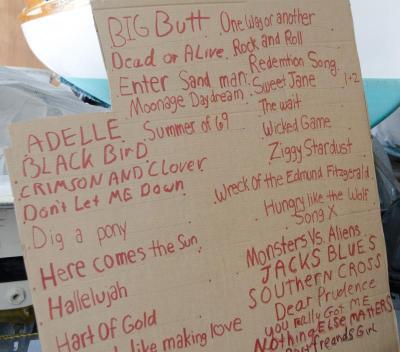 BIG Butt
Dead or Alive.
Enter Sand man:
Moonage Daydream.
ADELLE
BLACK BirD
CRIMSON AND CLOVER
Don't Let ME Down
Dig a pony
Here comes the Sun
Hallelujah
Hart Of Gold
like making love
Summer of 69
One Way or another
Rock and Roll
Redemtion Song.
Sweet Jane 1+2
The wait
Wicked Game
Ziggy Stardust
Wreck Of the Edmund Fitzgerald
Hungry like the Wolf
Song X
Monsters Vs. Aliens
JACKS BLUE'S
SOUTHERN CROSS
Dear Prudence
you Really Got ME
NOthing ELSE MATTERS
Girl